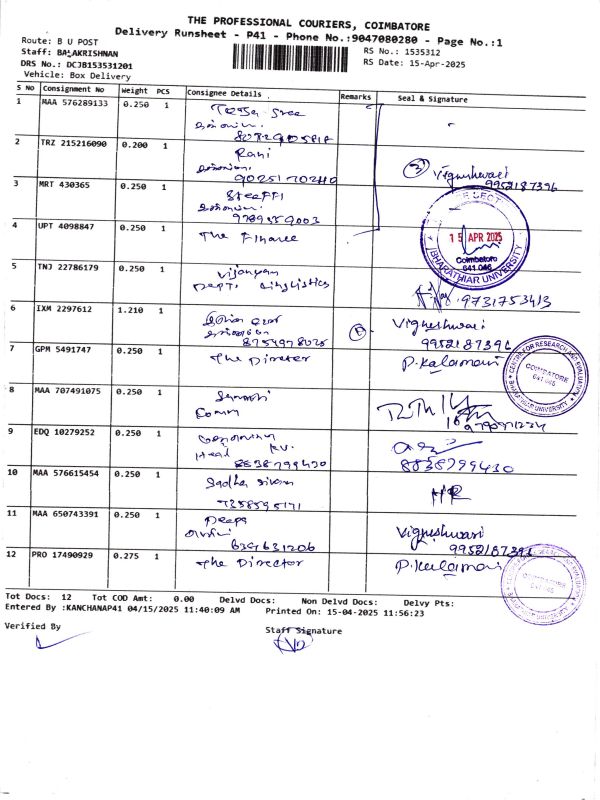 THE PROFESSIONAL COURIERS, COIMBATORE
Delivery Runsheet - P41 - Phone No.:9047080280 - Page No.:1
Route: B U POST
RS No.: 1535312
Staff: BALAKRISHNAN
RS Date: 15-Apr-2025
DRS No.: DCJB153531201
Vehicle: Box Delivery
S No Consignment No Weight PCS Consignee Details Remarks Seal & Signature
1 MAA 576289133 0.250 1
2 TRZ 215216090 0.200 1 Rani
9025170240
Vigneshwari
9952187396
3 MRT 430365 0.250 1
9789559003
4 UPT 4098847 0.250 1 The Finance
15 APR 2025
Coimbatore
641 046
BHARATHIAR UNIVERSITY
5 TNJ 22786179 0.250 1 Vijayan
Dept. Linglistics
9731753413
6 IXM 2297612 1.210 1
8754978025
Vigneshwari
9952187396
7 GPM 5491747 0.250 1 The Director
P.Kalamani
CENTRE FOR RESEARCH AND EVALUATION
COIMBATORE
641 046
BHARATHIAR UNIVERSITY
8 MAA 707491075 0.250 1
Comm
9 EDQ 10279252 0.250 1
Head
8838799430
8838799430
10 MAA 576615454 0.250 1 Sadha Sivam
7358595171
11 MAA 650743391 0.250 1 Deepa
6379631206
Vigneshwari
9952187396
12 PRO 17490929 0.275 1 The Director
P.Kalamani
COIMBATORE
641 046
BHARATHIAR UNIVERSITY
Tot Docs: 12 Tot COD Amt: 0.00 Delvd Docs: Non Delvd Docs: Delvy Pts:
Entered By :KANCHANAP41 04/15/2025 11:40:09 AM Printed On: 15-04-2025 11:56:23
Verified By
Staff Signature